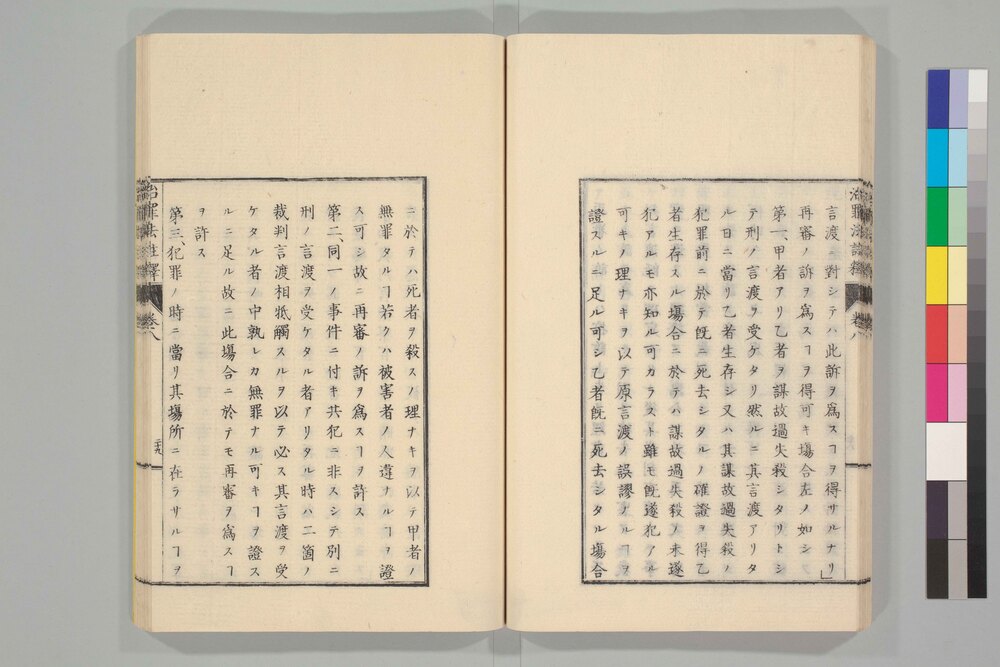 言渡ニ對シテハ此訴ヲ爲スヿヲ得サルナリ」
再審ノ訴ヲ爲スヿヲ得可キ塲合左ノ如シ
第一、甲者アリ乙者ヲ謀故過失殺シタリトシ
テ刑ノ言渡ヲ受ケタリ然ルニ其言渡アリタ
ル日ニ當リ乙者生存シ又ハ其謀故過失殺ノ
犯罪前ニ於テ既ニ死去シタルノ確證ヲ得乙
者生存スル塲合ニ於テハ謀故過失殺ノ未遂
犯アルモ亦知ル可カラスト雖モ既遂犯アル
可キノ理ナキヲ以テ原言渡ノ誤謬ナルヿヲ
證スルニ足ル可シ乙者既ニ死去シタル塲合
治罪法註釋 卷八
ニ於テハ死者ヲ殺スノ理ナキヲ以テ甲者ノ
無罪タルヿ若クハ被害者ノ人違ナルヿヲ證
ス可シ故ニ再審ノ訴ヲ爲スヿヲ許ス
第二、同一ノ事件ニ付キ共犯ニ非スシテ別ニ
刑ノ言渡ヲ受ケタル者アリタル時ハ二箇ノ
裁判言渡相牴觸スルヲ以テ必ス其言渡ヲ受
ケタル者ノ中孰レカ無罪ナル可キヿヲ證ス
ルニ足ル故ニ此塲合ニ於テモ再審ヲ爲スヿ
ヲ許ス
第三、犯罪ノ時ニ當リ其塲所ニ在ラサルヿヲ
治罪法註釋 卷八